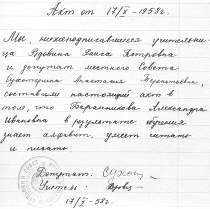 Акт от 17/X-1958г.
Мы, нижеподписавшиеся учительни-
ца Вдовина Раиса Петровна
и депутат местного Совета
Сухотерина Анастасия Игнатьевна,
составили настоящий акт в
том, что Баранникова Александра
Ивановна в результате обучения
знает алфавит, умеет читать
и писать.
Депутат:
Учитель:
17/X-58г.